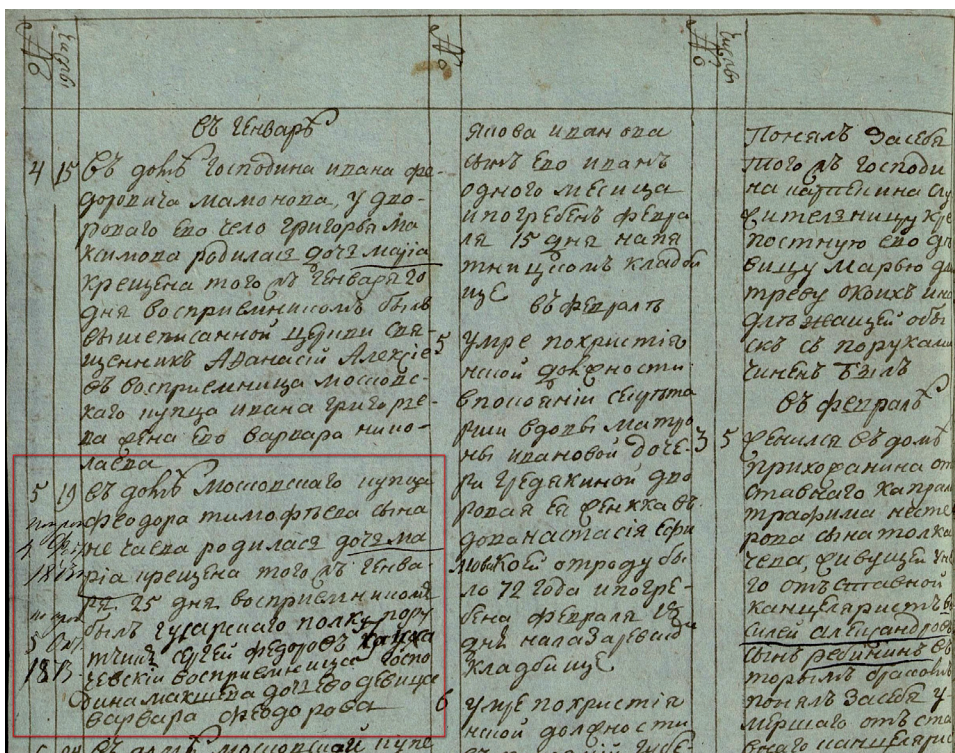 №
числы
въ генварѣ
4 15 въ домѣ господина ивана фе-
доровича мамонова, у дво-
роваго ево чело григорья ма
ксимова родилася дочь марiа
крещена того мѣ генваря го
дня восприемникомъ былъ
вышеписанной церкви свя-
щенникъ Афанасiй Алексѣе
въ восприемница московс-
каго купца ивана григорье-
ва жена ево варвара нико-
лаева
5 19 въ домѣ московскаго купца
феодора тимофѣева сына
не чаева родилася дочь ма
рiа крещена того мѣ генва-
ря 25 дня восприемникомъ
былъ гусарскаго полку пору
тчикъ сергей федоровъ
восприемница госпо
дина макшеева дочь ево девица
варвара феодорова
въ домѣ московскаго купц
№
якова иван ова
сынъ ево иванъ
одного месеца
и погребенъ февра
ля 15 дня на пя
тницкомъ кладби
ще
въ февралѣ
5 умре по христiя
нской должности
в покоянiи секрета
рши вдовы матро
ны ивановой доче-
ри гредякиной дво
ровая ея женка вѣ
дова настасiя ефи
мова коей отроду бы
ло 72 года и погре-
бена февраля
дня на лазаревско
кладбище
6 умре по христiя
нской должности
№
числы
Понялъ за себя
того мѣ господи
на
служителницу кре
постную ево дѣ
вицу Марью дми
треву о коихъ и на
длѣжащей обы
скъ съ поруками
чиненъ былъ
въ февралѣ
3 5 женился въ домѣ
прихожанина от
ставнаго капрал
трафима несте
рова сына толка
чева, живущей у не
го отъ ставной
канцеляристъ ва
силей александровъ
сынъ ребининъ въ
торымъ бракомъ
понялъ за себя у-
мершаго отъ ста
внаго канцеляри